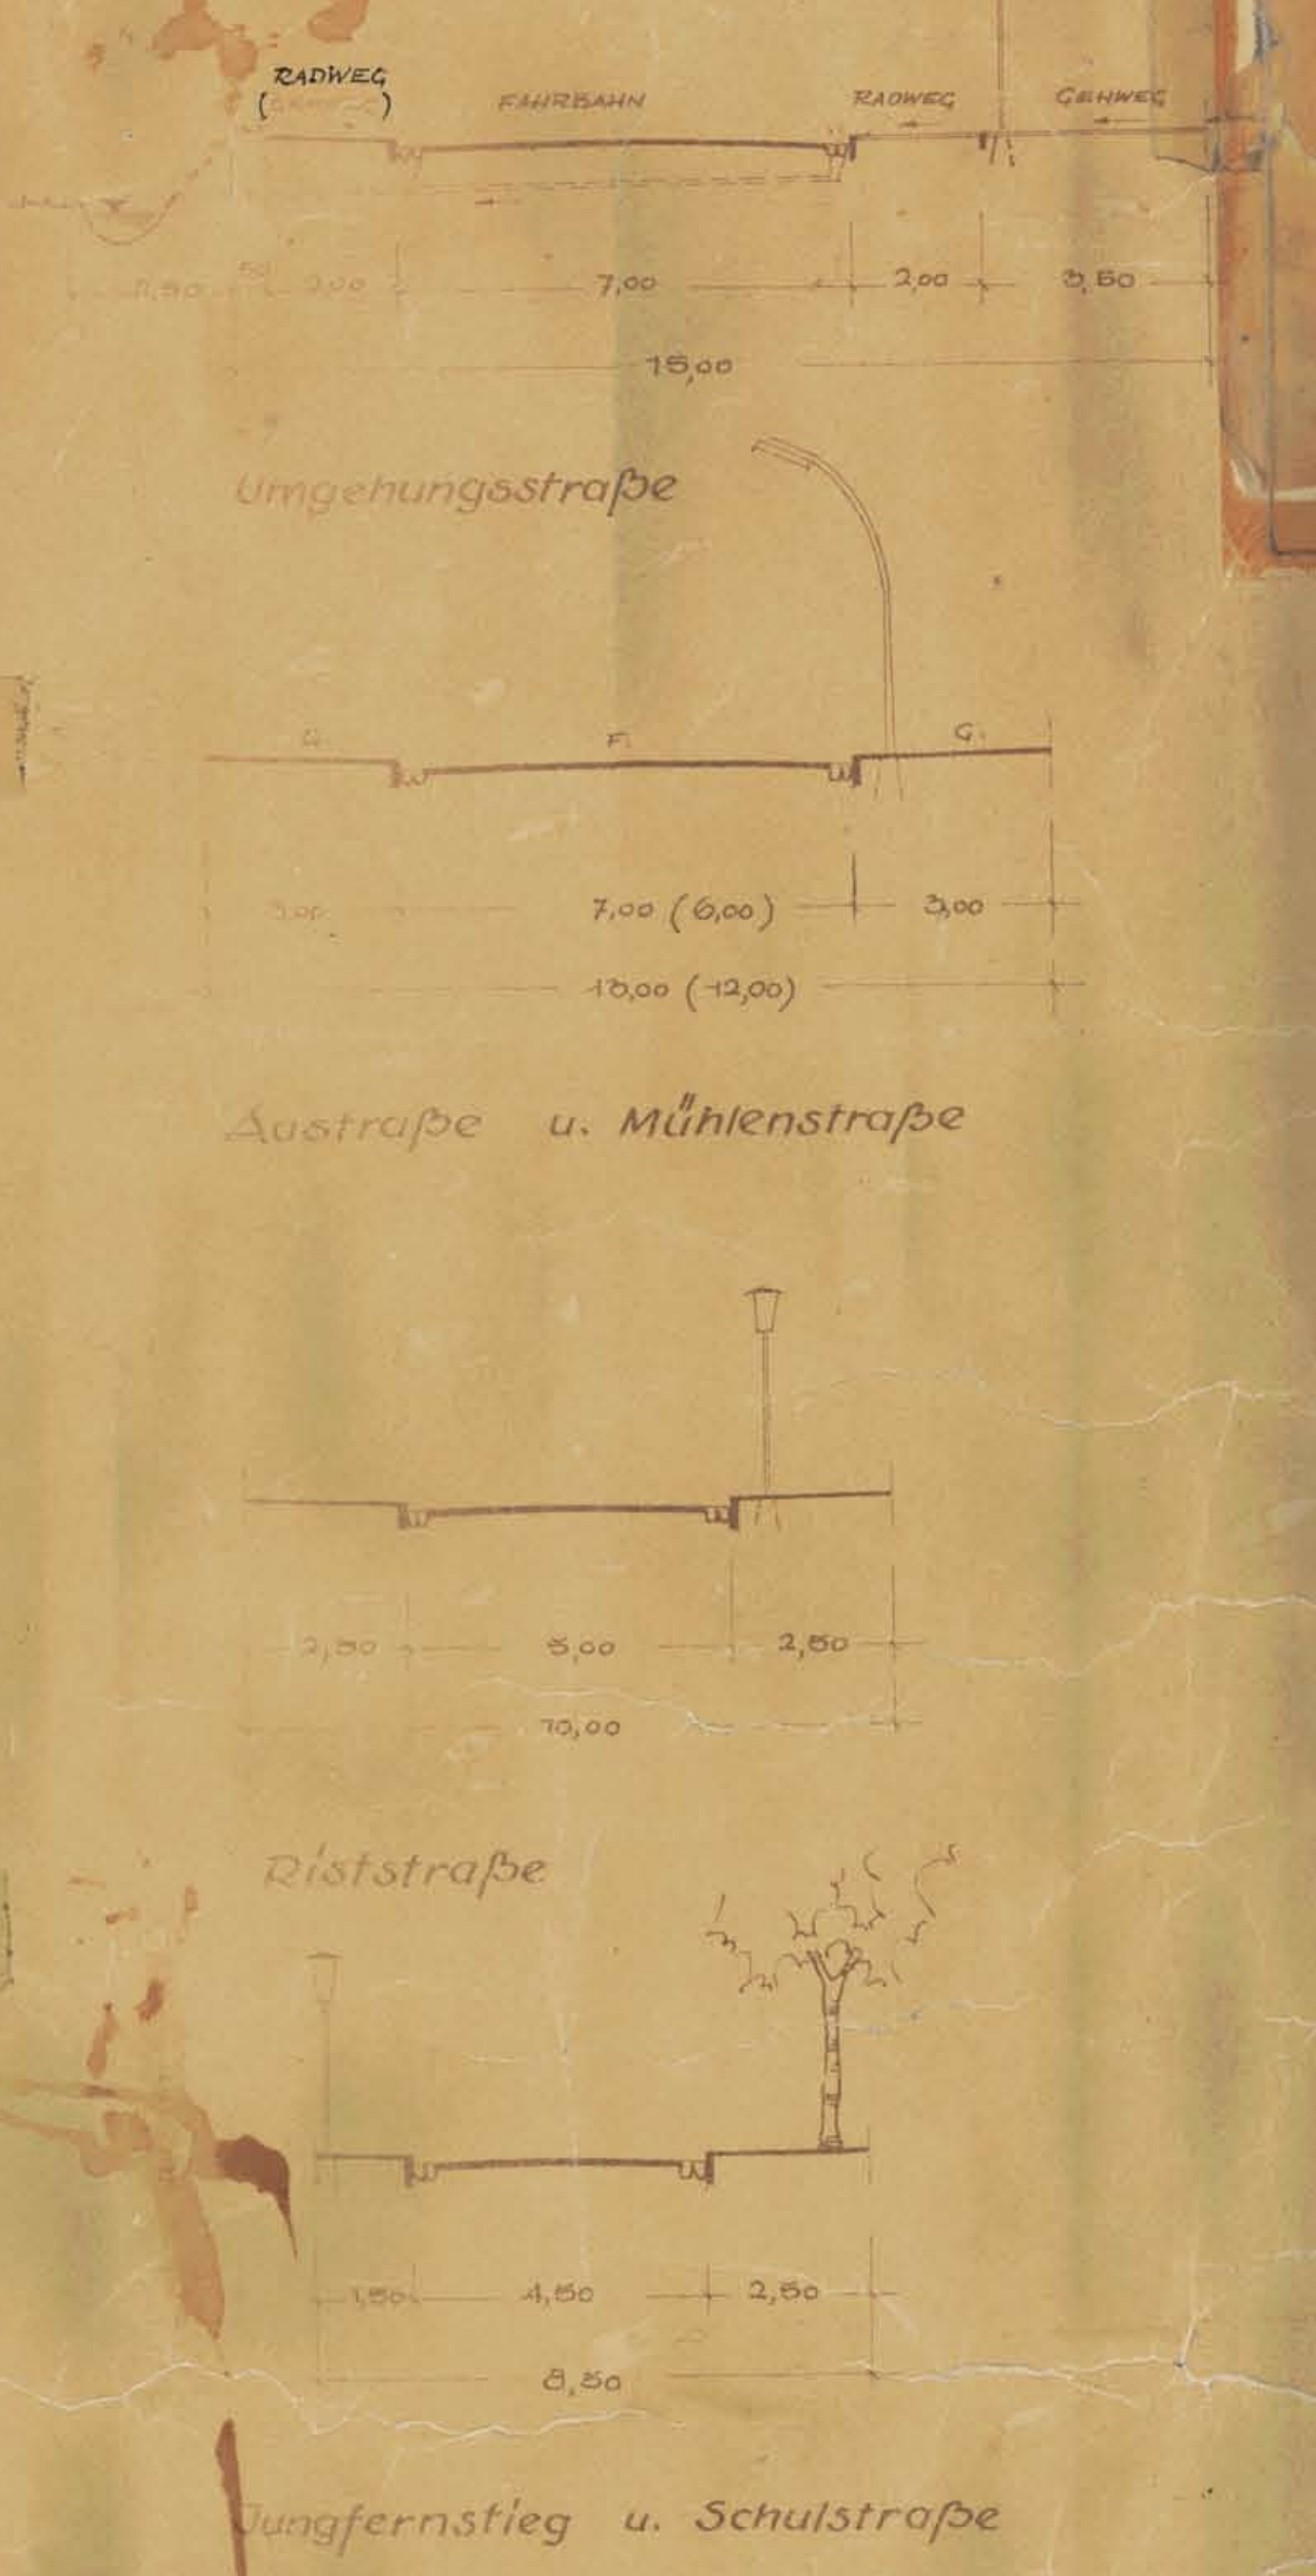 RADWEG
( )
FAHRBAHN RADWEG GEHWEG
50 2,00 7,00 2,00 3,50
15,00
Umgehungsstraße
G. F. G.
3,00 7,00 (6,00) 3,00
13,00 (12,00)
Austraße u. Mühlenstraße
2,50 5,00 2,50
10,00
Riststraße
1,50 4,50 2,50
8,50
Jungfernstieg u. Schulstraße